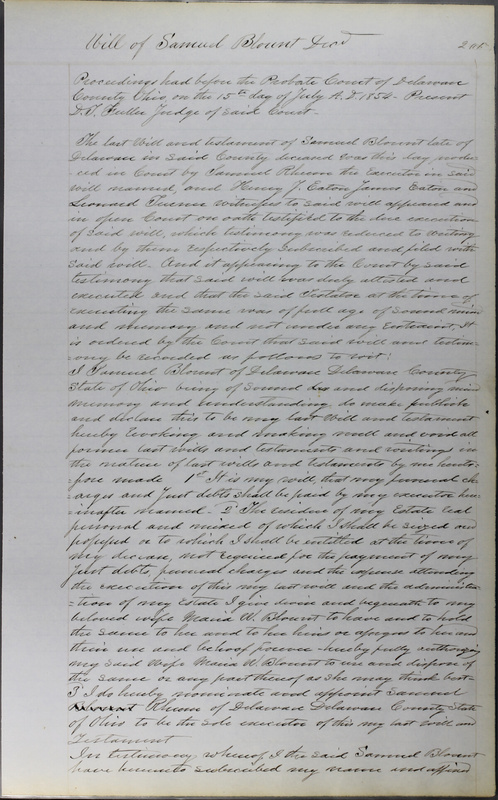 Will of Samuel Blount Decd
Proceedings had before the Probate Court of Delaware
County Ohio on the 15th day of July A.D. 1854. Present
D.T. Fuller Judge of Said Court.
The last Will and testament of Samuel Blount late of
Delaware in Said County deceased was this day produ=
=ced in Court by Samuel Rheem the Executor in Said
will named, and Henry J. Eaton James Eaton and
Leonard witnesses to Said will appeared and
in open Court on oath testified to the due execution
of Said will, which testimony was reduced to writing
and by them respectively Subscribed and filed with
Said will. And it appearing to the Court by Said
testimony that Said will was duly attested and
executed and that the Said Testator at the time of
executing the Same was of full age of Sound mind
and memory and not under any restraint. It
is ordered by the Court that Said will and testim=
=ony be recorded as follows to wit:
I Samuel Blount of Delaware Delaware County
State of Ohio being of Sound and disposing mind
memory and understanding do make publish
and declare this to be my last Will and testament
hereby Revoking and making null and void all
former last wills and testaments and writings in
the nature of last wills and testaments by me hereto=
=fore made 1st It is my will, that my funeral ch=
=arges and Just debts Shall be paid by my executor her=
=inafter named. 2d The residue of my Estate real
personal and mixed of which I Shall be Seized or
possessed or to which I Shall be entitled at the time of
my decease, not required for the payment of my
Just debts, funeral charges and the expense attending
the execution of this my last will and the administra=
=tion of my Estate I give devise and bequeath to my
beloved wife Maria W. Blount to have and to hold
the Same to her and to her heirs or assigns to her and
their use and behoof forever hereby fully authorizing
my Said Wife Maria W Blount to use and dispose of
the Same or any part thereof as She may think best
3d I do hereby nominate and appoint Samuel
Rheem of Delaware Delaware County State
of Ohio to be the Sole executor of this my last will and
Testament
In testimony whereof I the Said Samuel Blount
have hereunto Subscribed my name and affixed